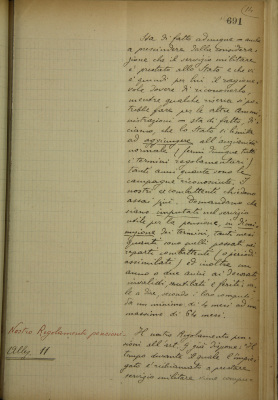 691
Sta di fatto adunque
a prescindere dalla considera-
zione che il servizio militare
è prestato allo Stato e che vi
è quindi per lui il ragione-
vole dovere di riconoscerlo,
mentre qualche riserva si po-
trebbe fare per le altre ammi-
nistrazioni sta di fatto, di-
ciamo, che lo Stato si limita
ad aggiungere all'anzianità
normale (fermi dunque tutti
i termini regolamentari)
tanti anni quante sono le
campagne riconosciute. I
nostri ex combattenti chiedono
assai più. Domandano che
siano imputati nel servizio
utile per la pensione, in dimi-
nuzione dei termini, tanti mesi
quanti sono quelli passati nei
reparti combattenti (o presidi
assimilati) ed inoltre un
anno o due anni ai decorati
invalidi, mutilati e feriti
un minimo di mesi ad un
massimo di 64 mesi.
Nostro Regolamento pensioni
Alleg. 11
Il nostro Regolamento pen-
sioni all'art. 9 così dispone: "Il
tempo durante il quale l'impie-
gato è richiamato a prestare
servizio militare